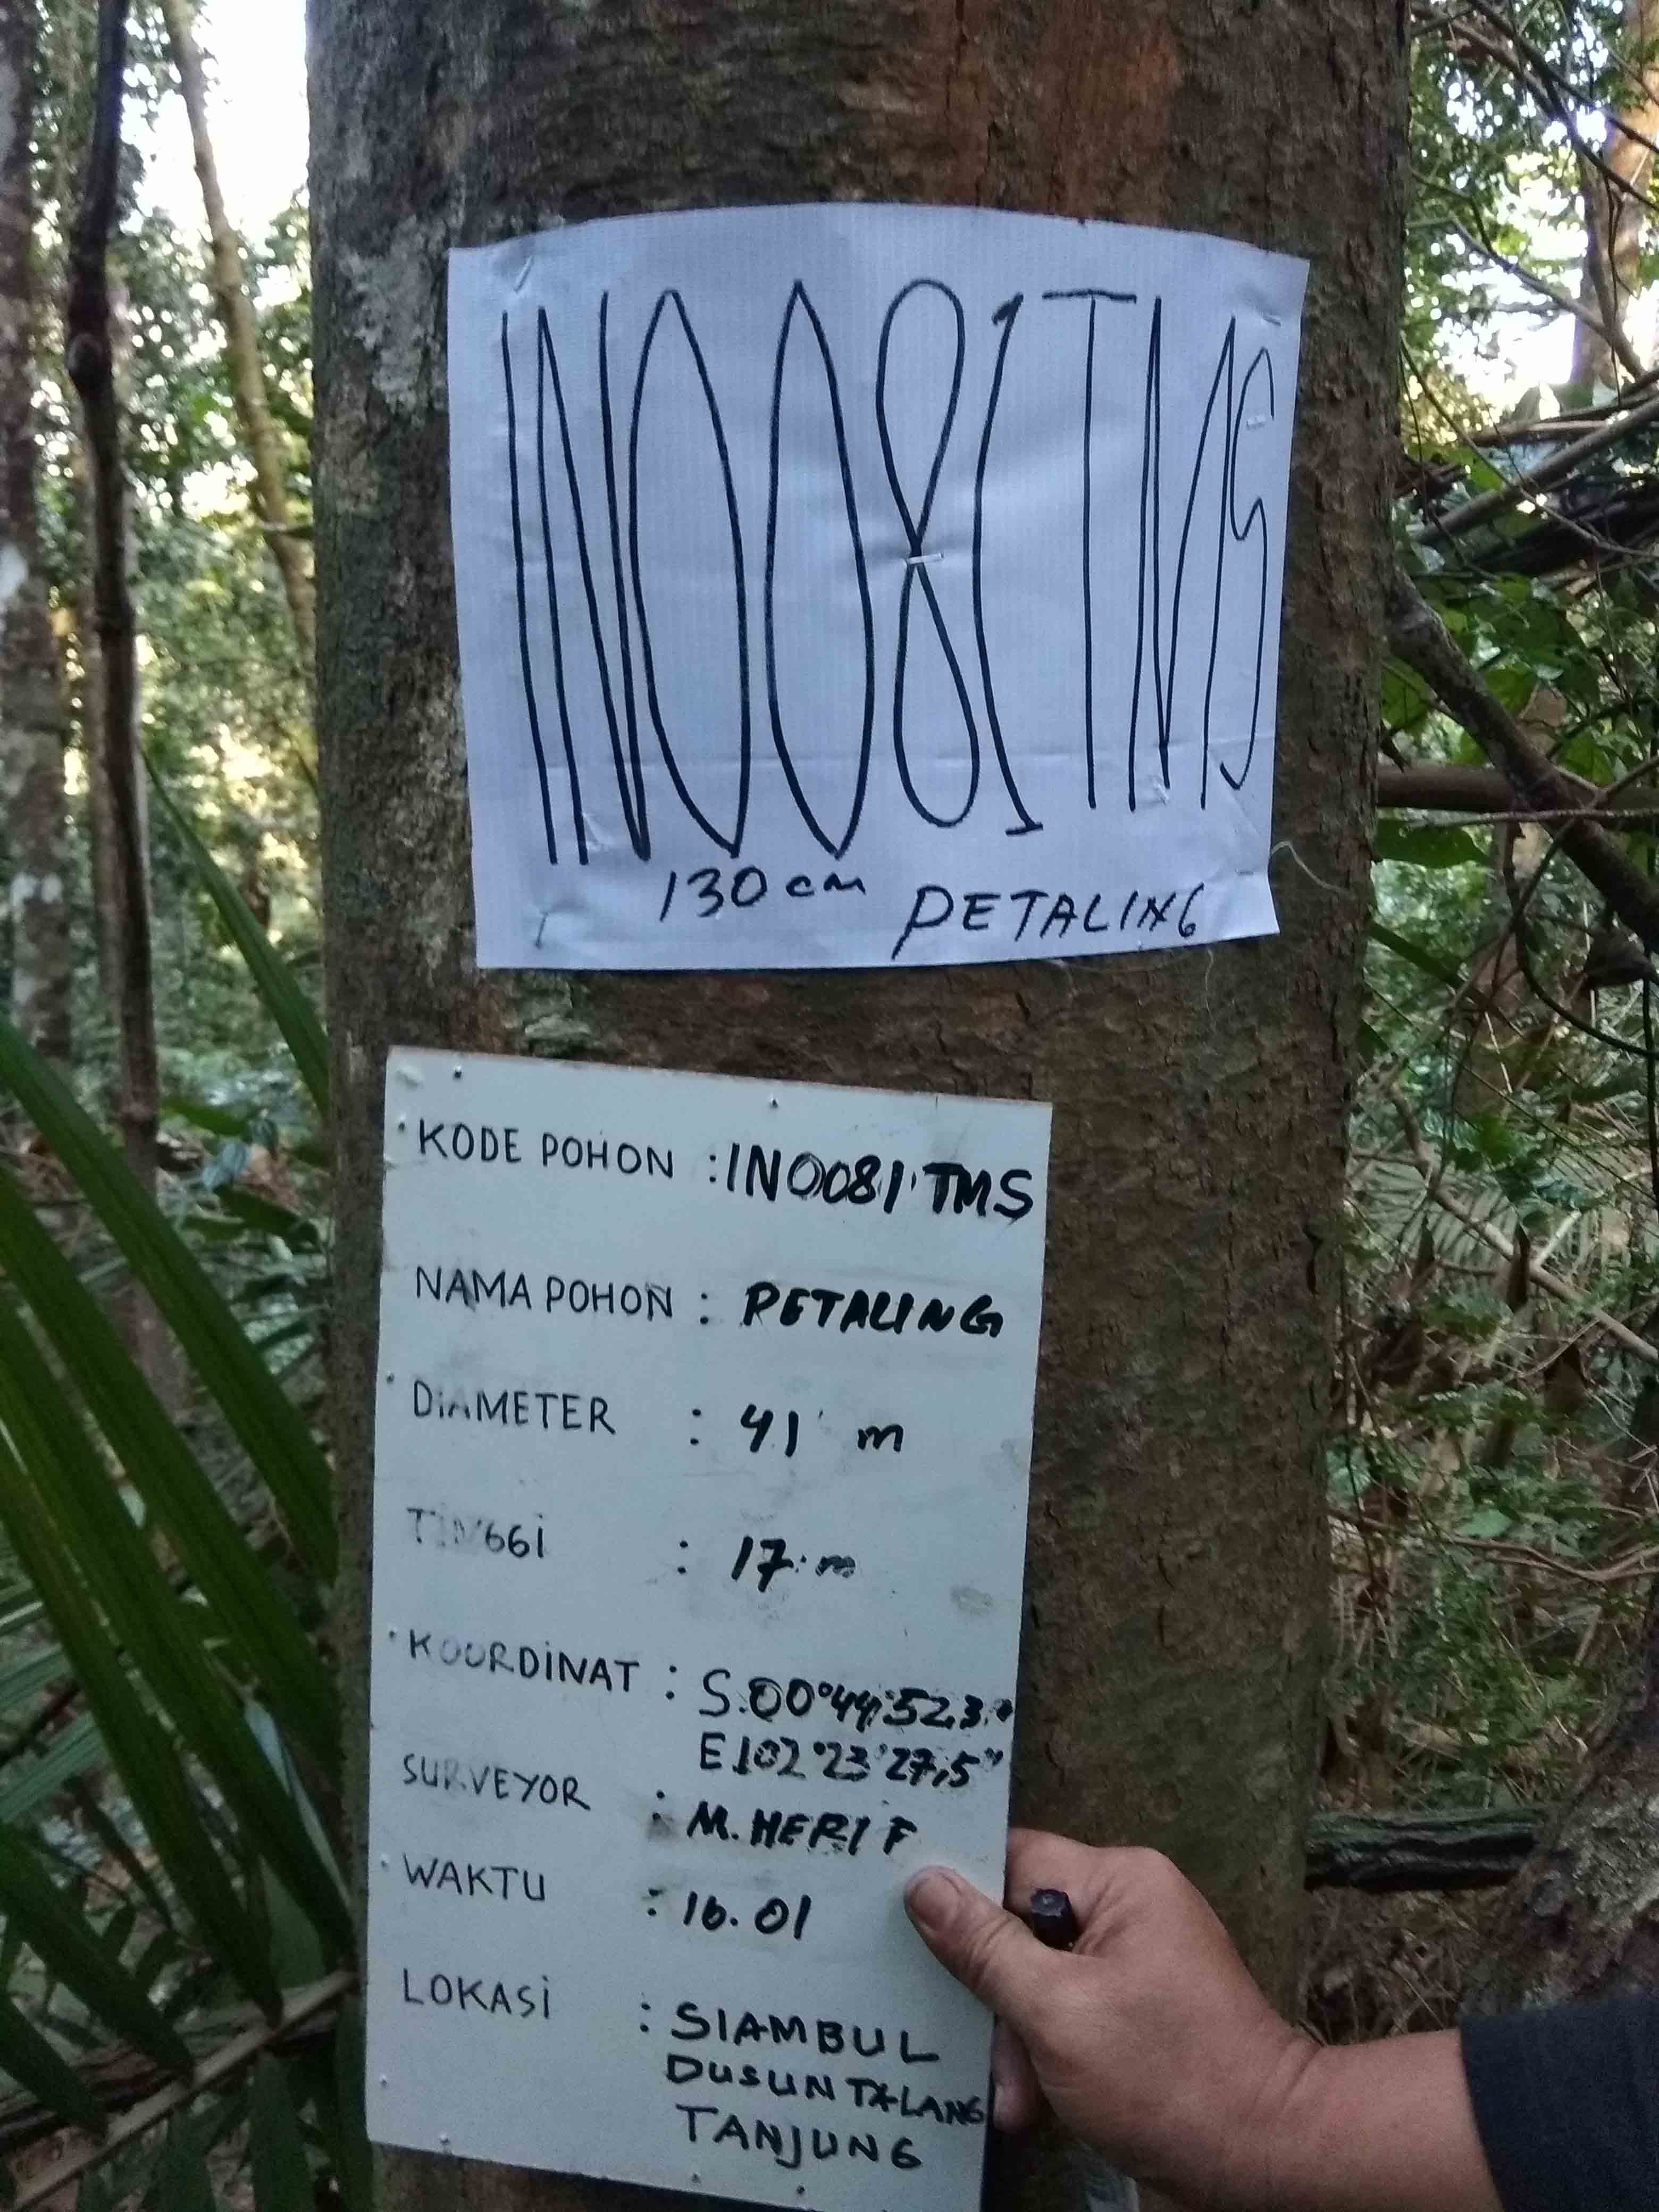 INOO81TMS
130 cm PETALING
KODE POHON : INOO81 TMS
NAMA POHON : PETALING
DIAMETER : 41 m
TINGGI : 17 m
KOORDINAT : S.00°44'52,3"
E.102°23'27,5"
SURVEYOR : M. HERI F
WAKTU : 16.01
LOKASI : SIAMBUL
DUSUN TALANG
TANJUNG